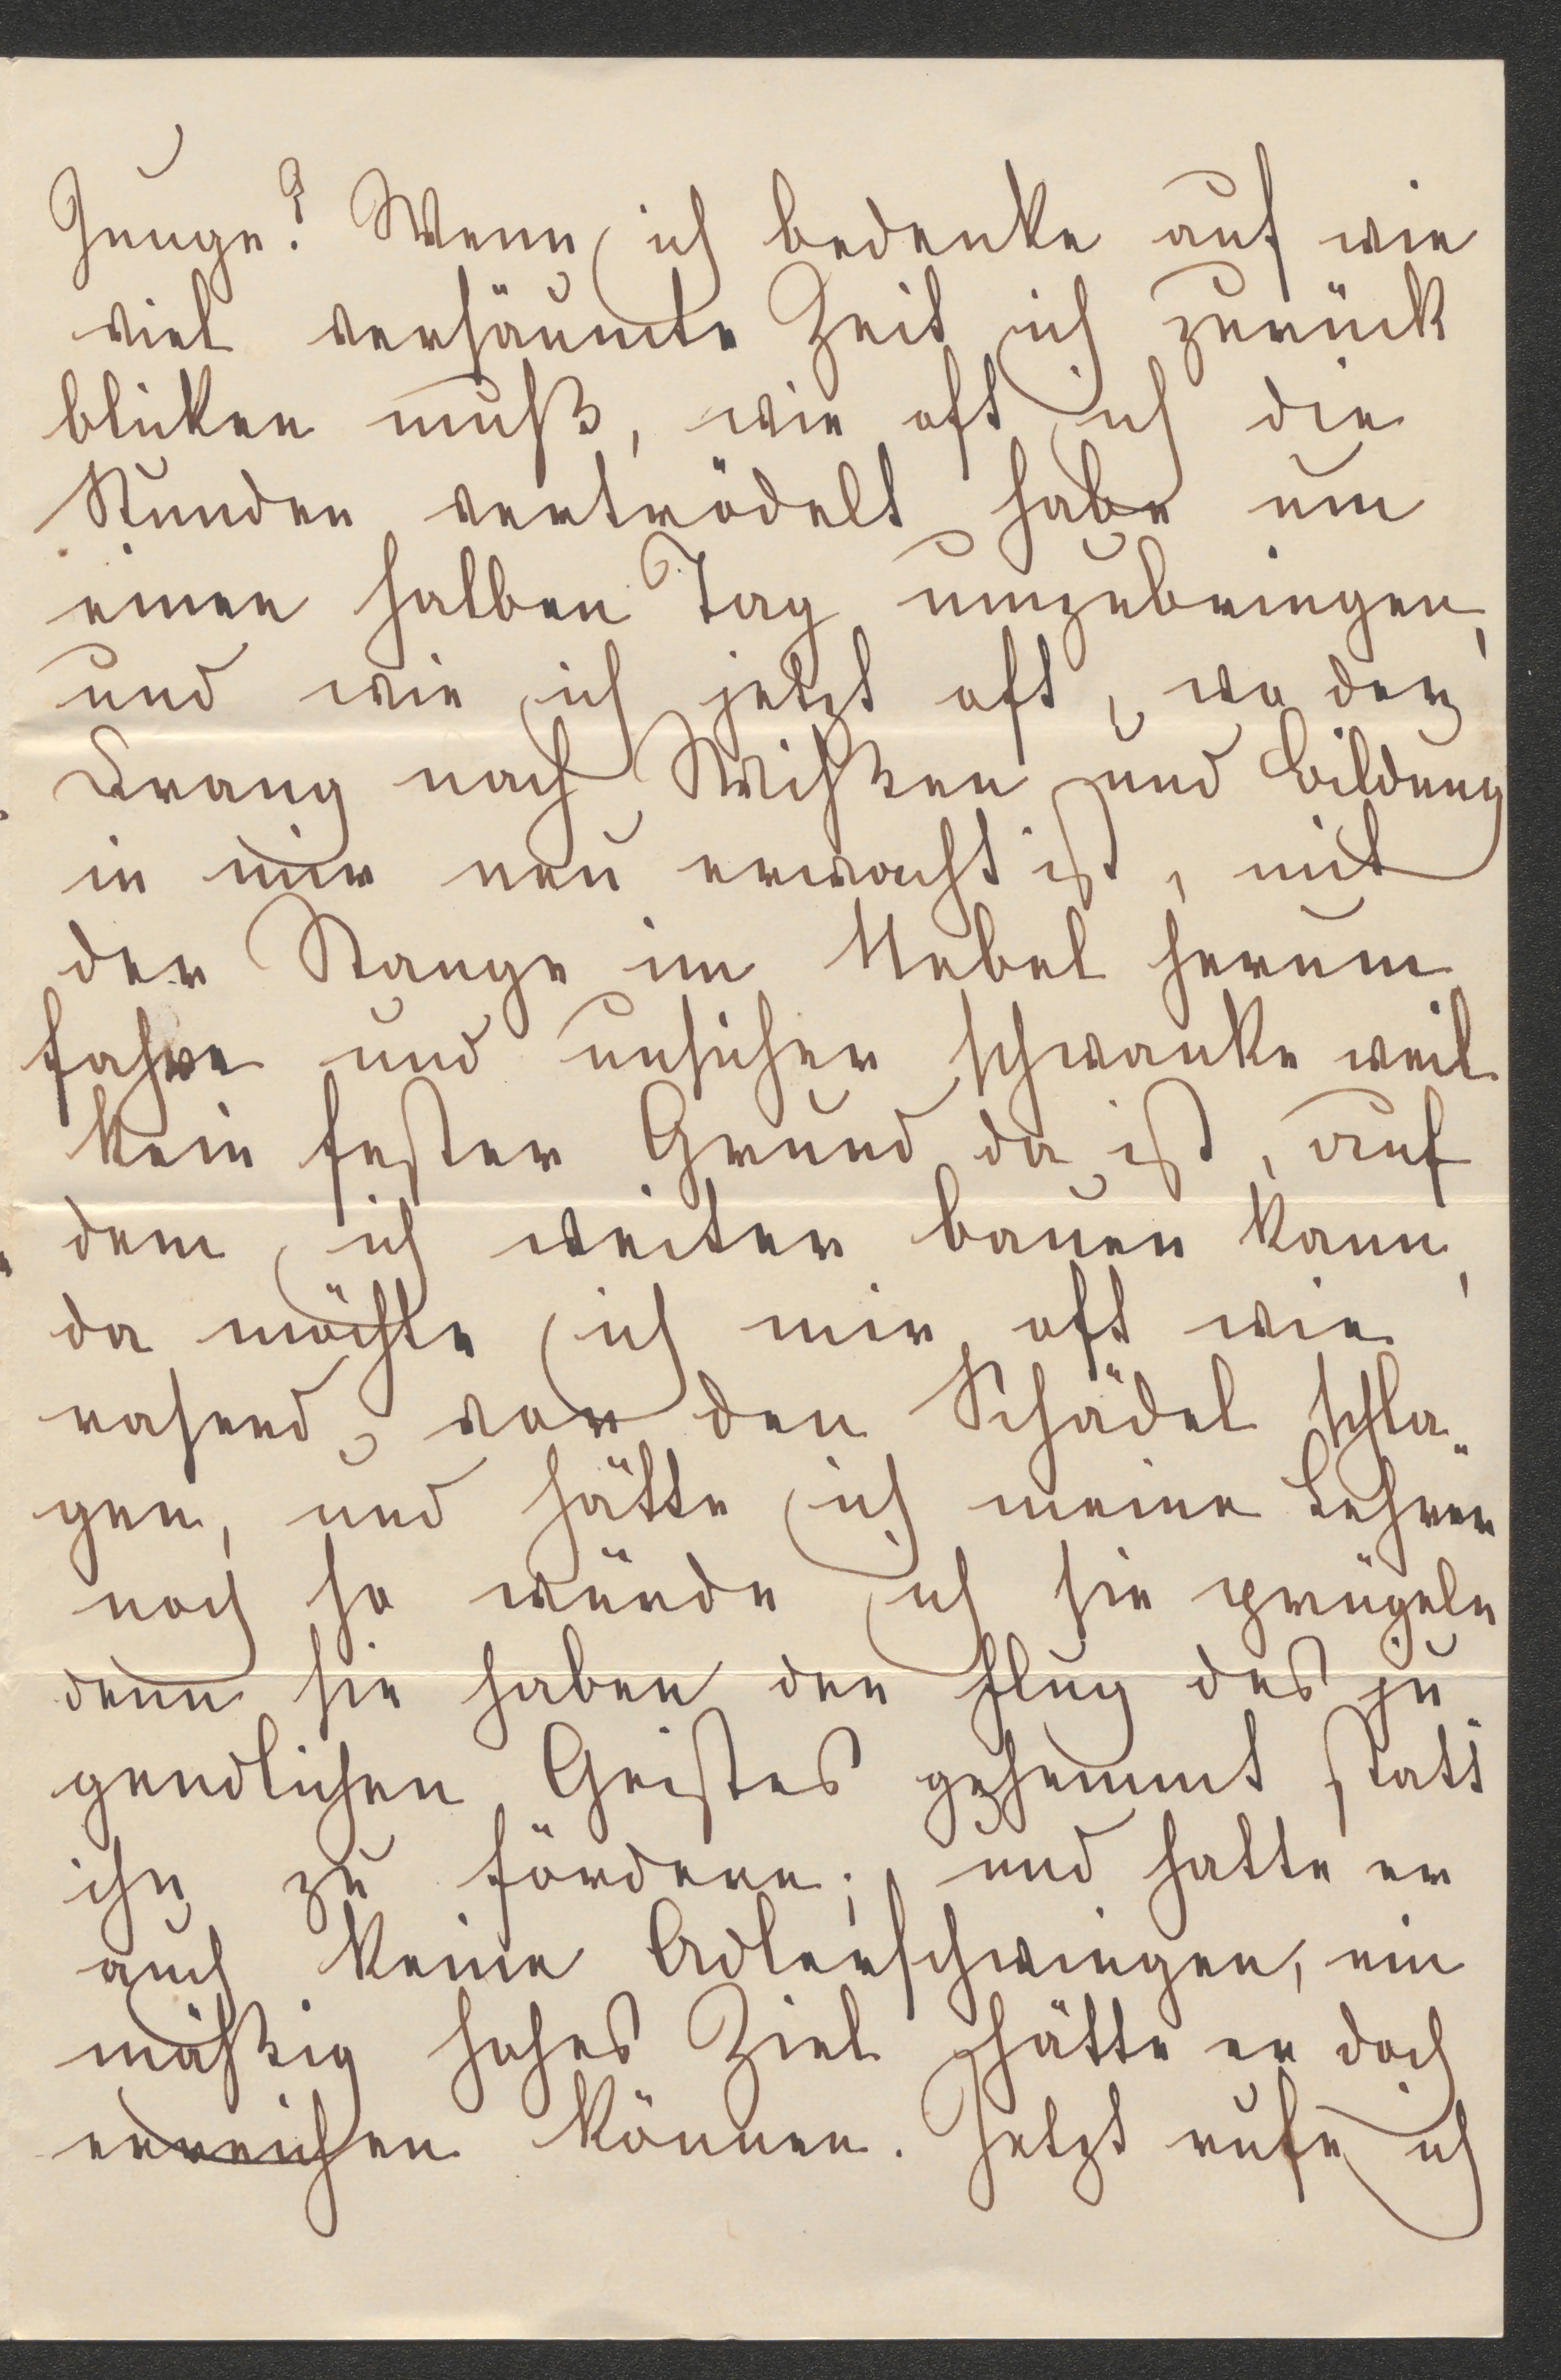 Junge? Wenn ich bedenke auf wie
viel versäumte Zeit ich zurück
blicken muß, wie oft ich die
Stunden vertrödelt habe um
einen halben Tag umzubringen,
und wie ich jetzt oft, wo der
Drang nach Wißen und Bildung
in mir neu erwacht ist, mit
der Stange im Nebel herum
fahre und unsicher schwanke weil
kein fester Grund da ist, auf
dem ich weiter bauen kann,
da möchte ich mir oft wie
rasend vor den Schädel schla„
gen, und hätte ich meine Lehrer
noch so würde ich sie prügeln
denn sie haben den Flug des ju„
gendlichen Geistes gehemmt statt
ihn zu fördern; und hatte er
auch keine Adlerschwingen, ein
mäßig hohes Ziel hätte er doch
erreichen können. Jetzt rufe ich